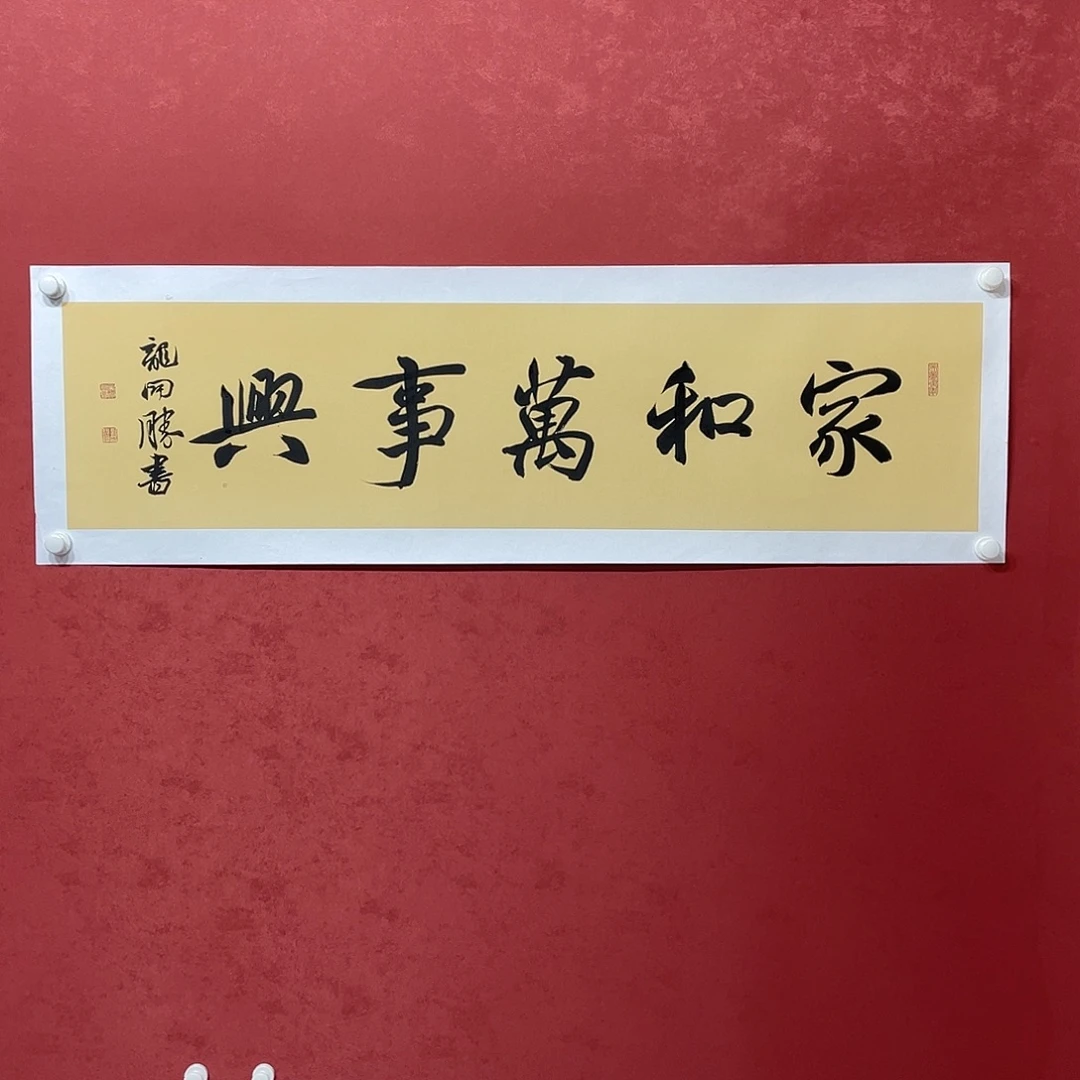 家和萬事興
龍開勝書